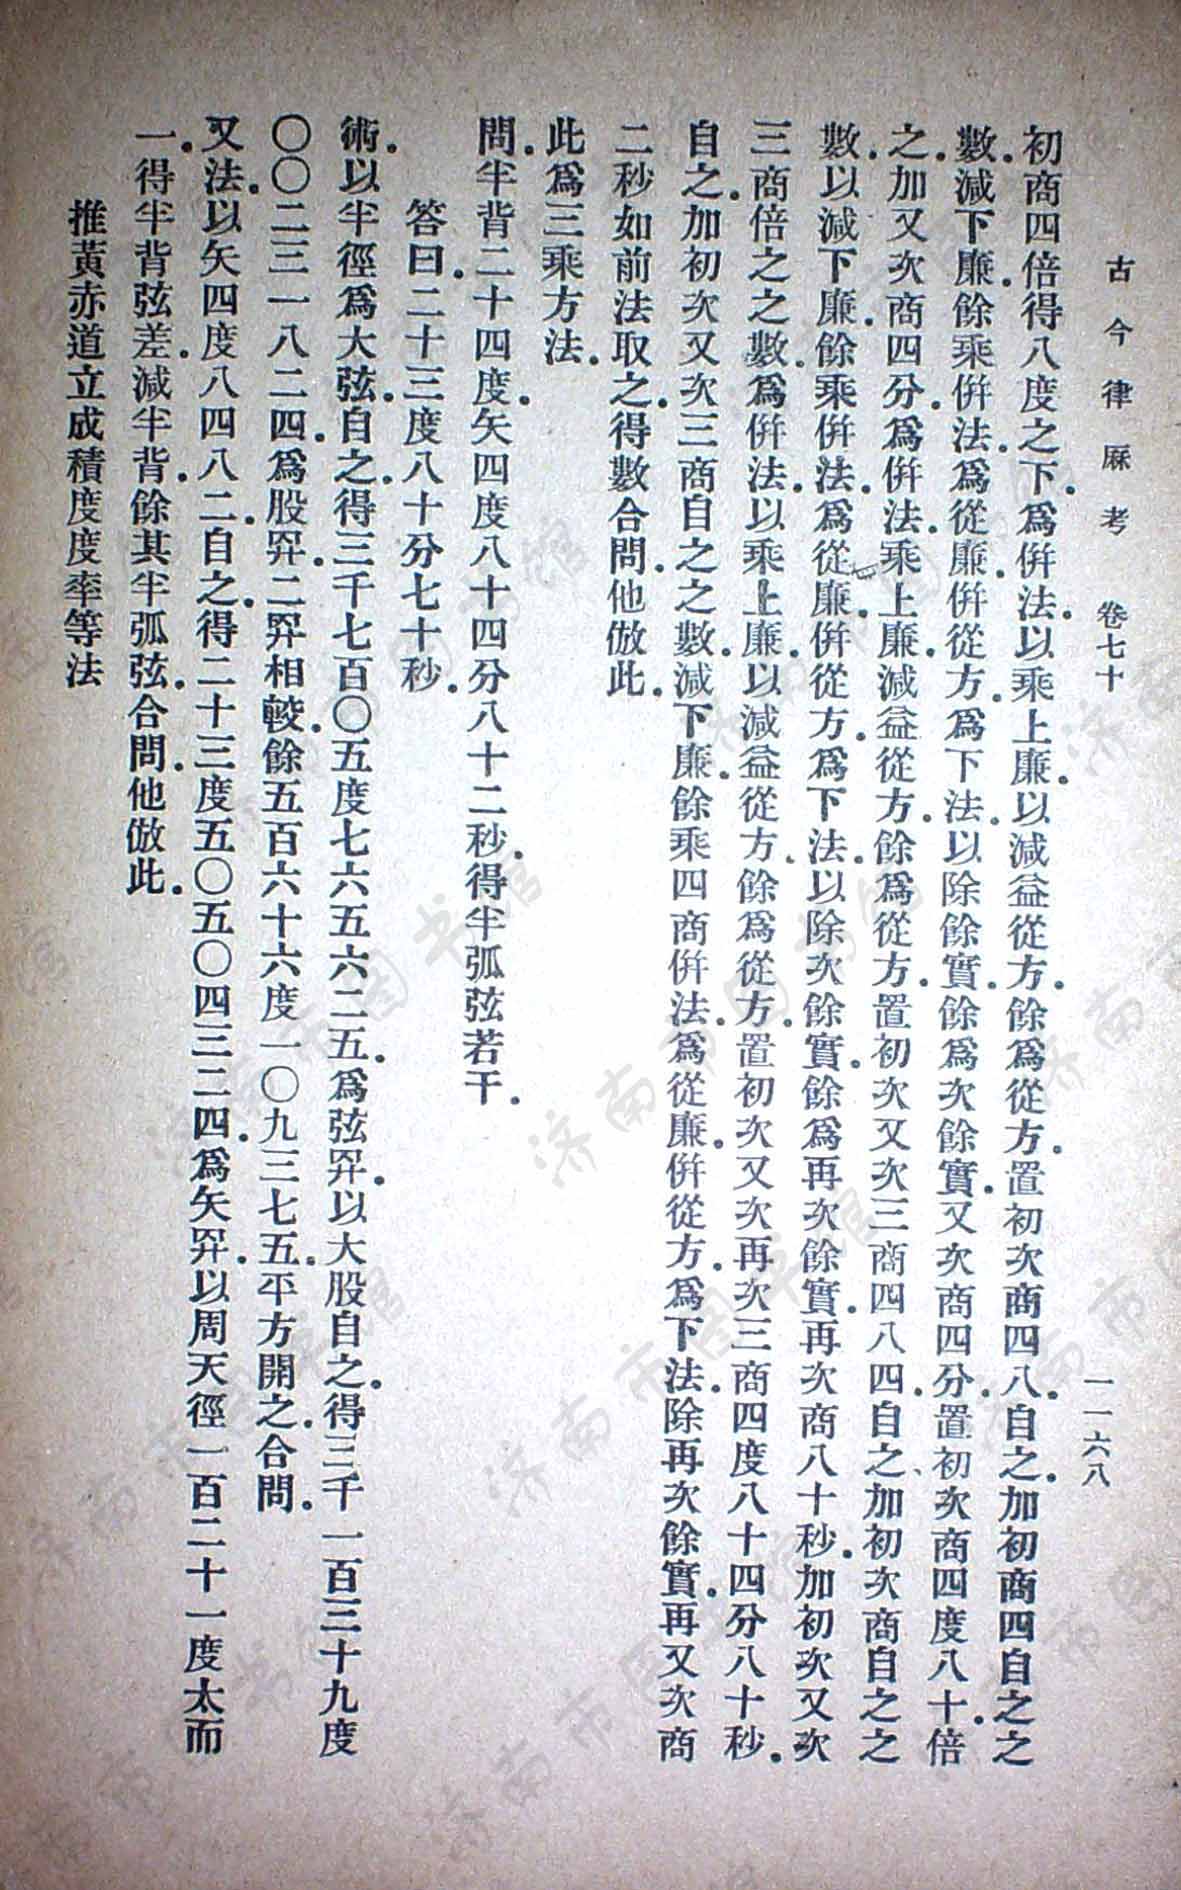 古今律厤考　卷七十　一一六八
初商四倍得八度之下。爲倂法。以乘上廉。以減益從方。餘爲從方。置初次商四八。自之。加初商四自之之
數。減下廉。餘乘倂法。爲從廉。倂從方。爲下法。以除餘實。餘爲次餘實。又次商四分。置初次商四度八十。倍
之。加又次商四分。爲倂法。乘上廉。減益從方。餘爲從方。置初次又次三商四八四。自之、加初次商自之之
數。以減下廉。餘乘倂法。爲從廉。倂從方。爲下法。以除次餘實。餘爲再次餘實。再次商八十秒。加初次又次
三商倍之之數。爲倂法。以乘上廉。以減益從方。餘爲從方。置初次又次再次三商四度八十四分八十秒。
自之。加初次又次三商自之之數。減下廉。餘乘四商倂法。爲從廉。倂從方。爲下法。除再次餘實。再又次商
二秒如前法取之。得數合問。他倣此。
此爲三乘方法。
問。半背二十四度。矢四度八十四分八十二秒。得半弧弦若干。
答曰。二十三度八十分七十秒。
術。以半徑爲大弦。自之。得三千七百〇五度七六五六二五。爲弦羃。以大股自之。得三千一百三十九度
〇〇二三一八二四。爲股羃。二羃相較。餘五百六十六度一〇九三七五。平方開之。合問。
又法。以矢四度八四八二。自之。得二十三度五〇五〇四三二四。爲矢羃。以周天徑一百二十一度太而
一。得半背弦差。減半背。餘其半弧弦。合問。他倣此。
推黃赤道立成積度度率等法